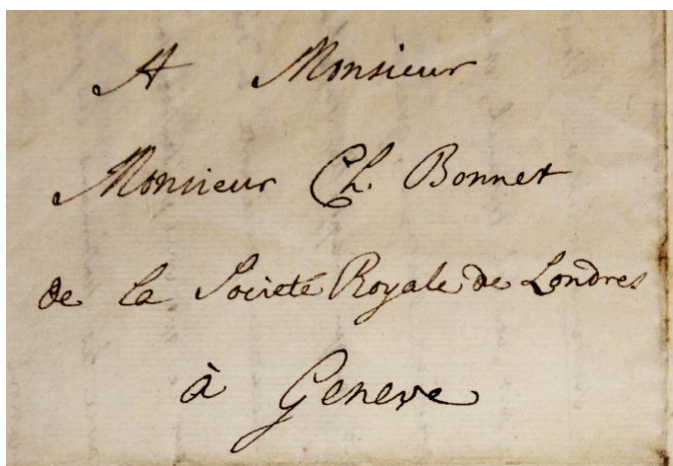 A Monsieur
Monsieur Ch. Bonnet
de la Societé Royale de Londres
à Geneve